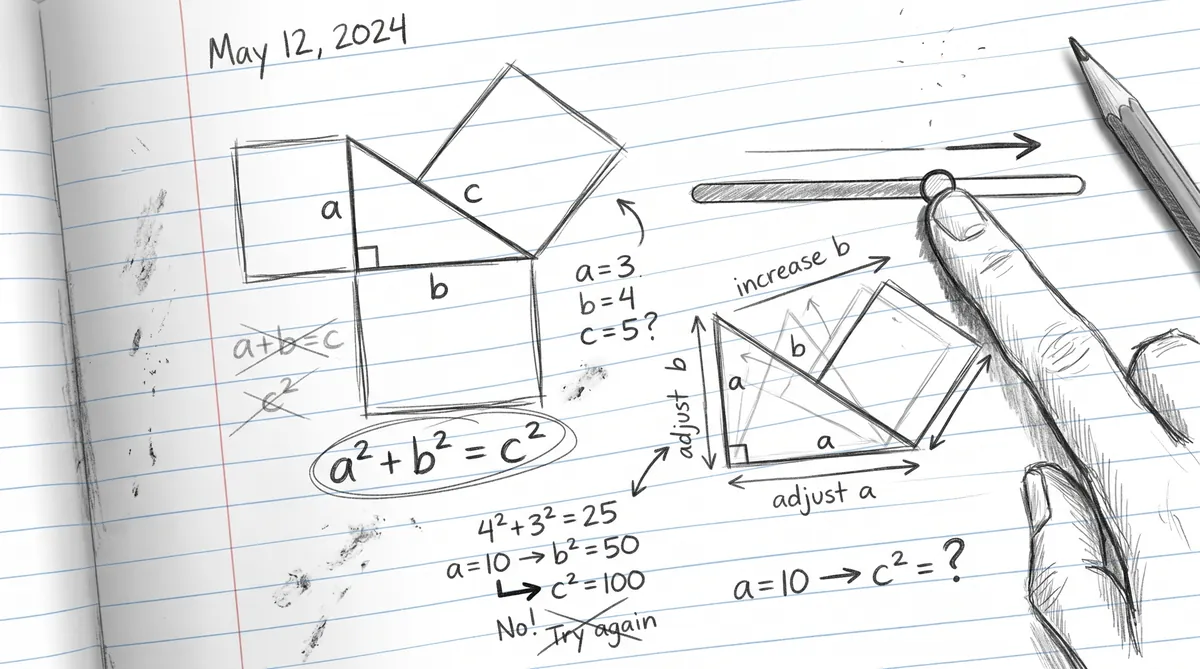 May 12, 2024
a
c
b
a+b=c
c²
a=3
b=4
c=5?
a²+b²=c²
increase b
adjust b
a
b
a
adjust a
4²+3²=25
a=10→b²=50
↳c²=100
No! Try again
a=10→c²=?